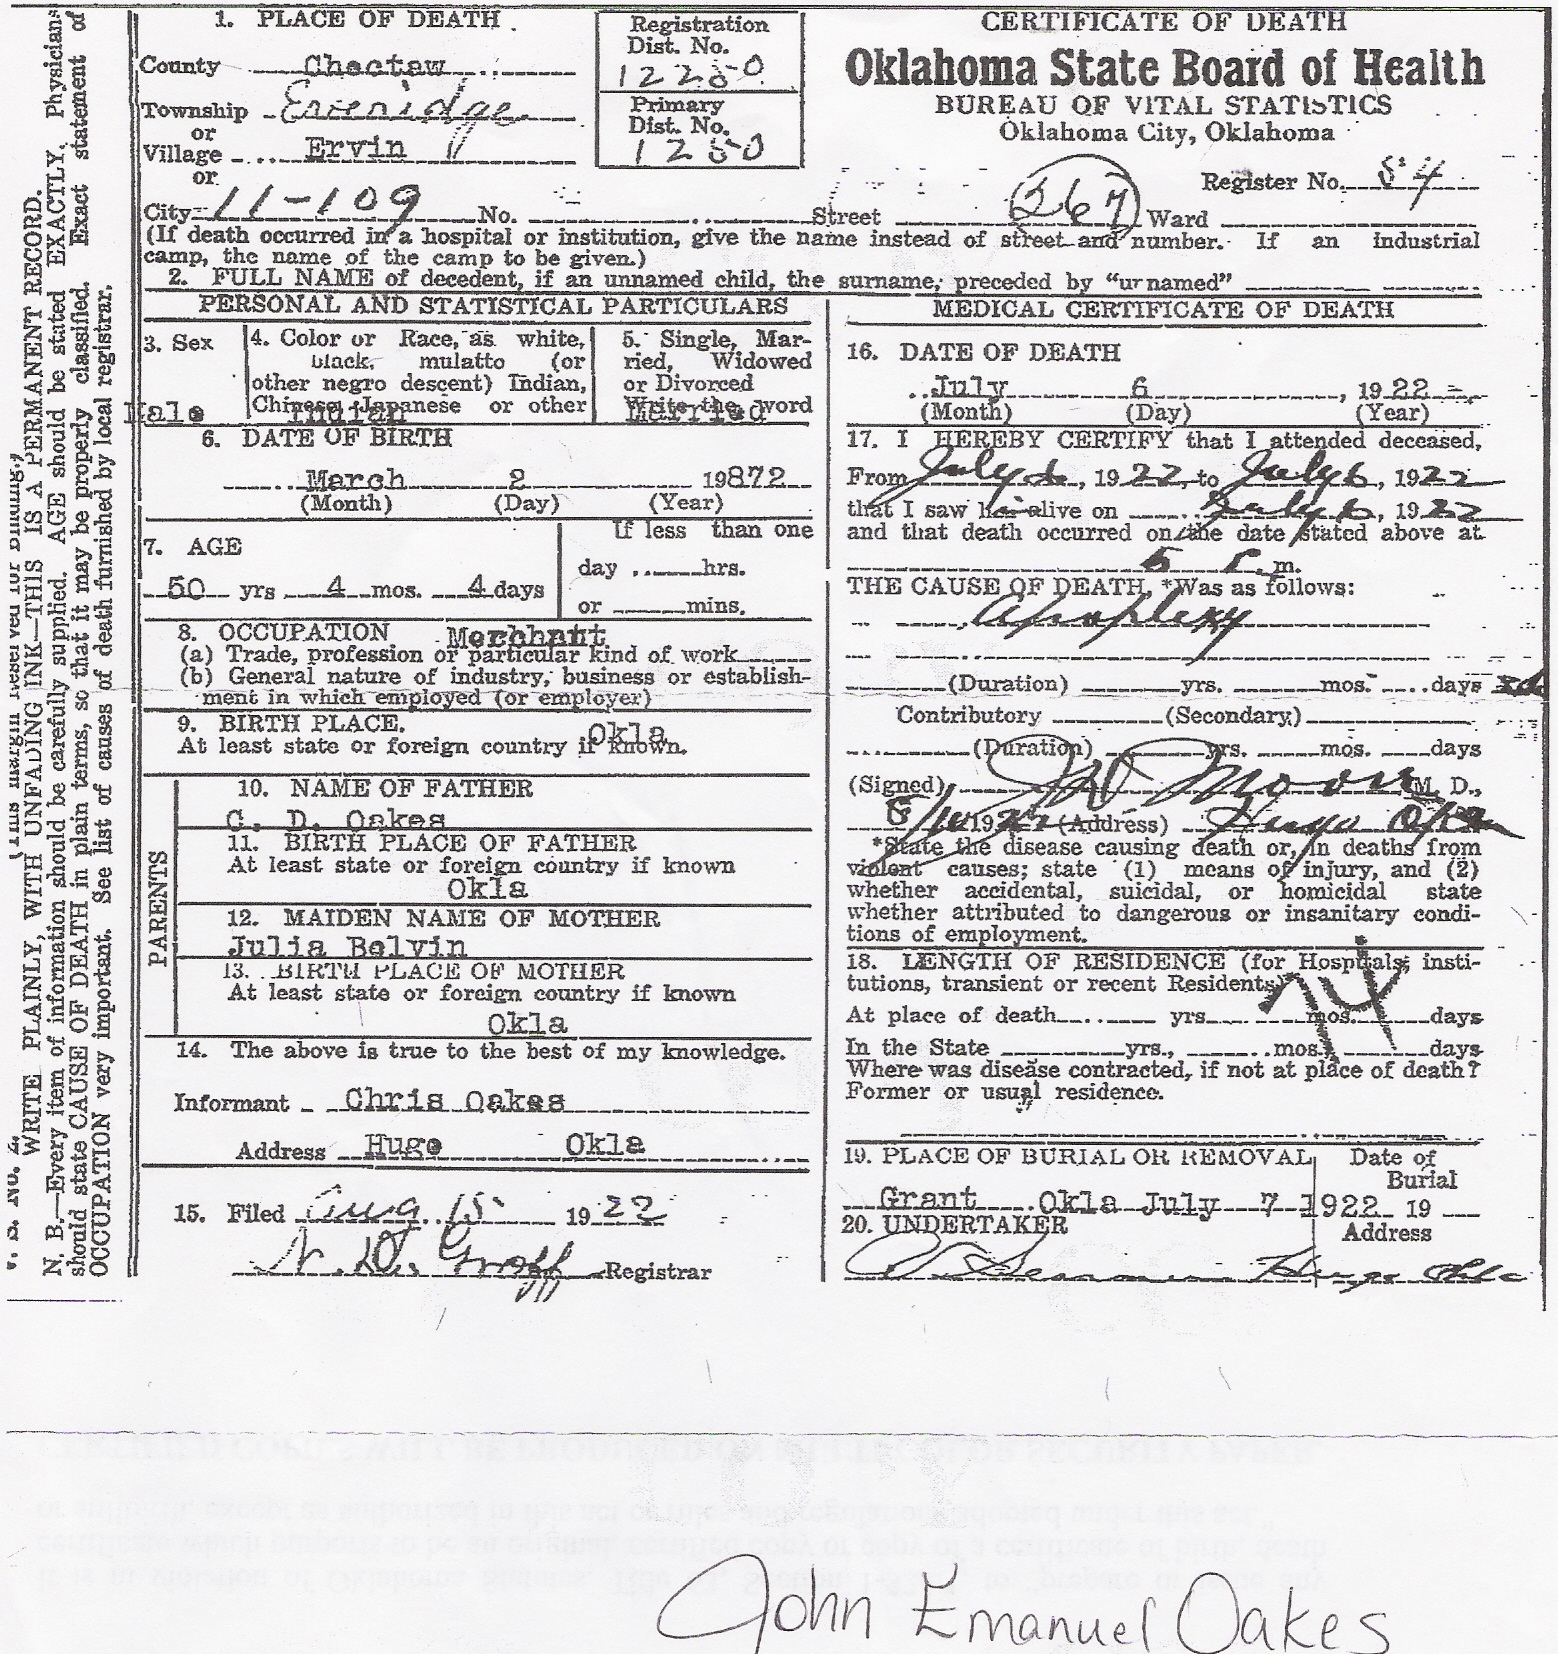 1. PLACE OF DEATH
County Choctaw
Township
or
Village Ervin
or
City 11-109 No. Street 367 Ward
Registration
Dist. No.
12280
Primary
Dist. No.
1280
CERTIFICATE OF DEATH
Oklahoma State Board of Health
BUREAU OF VITAL STATISTICS
Oklahoma City, Oklahoma
Register No. 84
(If death occurred in a hospital or institution, give the name instead of street and number. If an industrial
camp, the name of the camp to be given.)
2. FULL NAME of decedent, if an unnamed child, the surname, preceded by "unnamed"
PERSONAL AND STATISTICAL PARTICULARS
3. Sex
Male
4. Color or Race, as white,
black, mulatto (or
other negro descent) Indian,
Chinese, Japanese or other
Indian
5. Single, Mar-
ried, Widowed
or Divorced
Write the word
Married
6. DATE OF BIRTH
March 2 19872
(Month) (Day) (Year)
7. AGE
50 yrs 4 mos. 4 days
If less than one
day hrs.
or mins.
8. OCCUPATION Merchant
(a) Trade, profession or particular kind of work
(b) General nature of industry, business or establish-
ment in which employed (or employer)
9. BIRTH PLACE. Okla
At least state or foreign country if known.
PARENTS
10. NAME OF FATHER
C. D. Oakes
11. BIRTH PLACE OF FATHER
At least state or foreign country if known
Okla
12. MAIDEN NAME OF MOTHER
Julia Belvin
13. BIRTH PLACE OF MOTHER
At least state or foreign country if known
Okla
14. The above is true to the best of my knowledge.
Informant Chris Oakes
Address Hugo Okla
15. Filed Aug 15 1922
Registrar
MEDICAL CERTIFICATE OF DEATH
16. DATE OF DEATH
July 6, 1922
(Month) (Day) (Year)
17. I HEREBY CERTIFY that I attended deceased,
From July 6, 1922, to July 6, 1922
that I saw him alive on July 6, 1922
and that death occurred on the date stated above at
5 P. m.
THE CAUSE OF DEATH *Was as follows:
Apoplexy
(Duration) yrs. mos. days
Contributory (Secondary)
(Duration) yrs. mos. days
(Signed) J W Moore M. D.,
8/10 1922 (Address) Hugo Okla
*State the disease causing death or, in deaths from
violent causes; state (1) means of injury, and (2)
whether accidental, suicidal, or homicidal state
whether attributed to dangerous or insanitary condi-
tions of employment.
18. LENGTH OF RESIDENCE (for Hospitals, insti-
tutions, transient or recent Residents) 74
At place of death yrs. mos. days
In the State yrs., mos., days
Where was disease contracted, if not at place of death?
Former or usual residence.
19. PLACE OF BURIAL OR REMOVAL Date of
Burial
Grant Okla July 7 1922 19
20. UNDERTAKER Address
Hugo Okla
(This margin Reserved for Binding.)
WRITE PLAINLY, WITH UNFADING INK—THIS IS A PERMANENT RECORD.
N. B.—Every item of information should be carefully supplied. AGE should be stated EXACTLY. Physicians
should state CAUSE OF DEATH in plain terms, so that it may be properly classified. Exact statement of
OCCUPATION very important. See list of causes of death furnished by local registrar.
John Emanuel Oakes